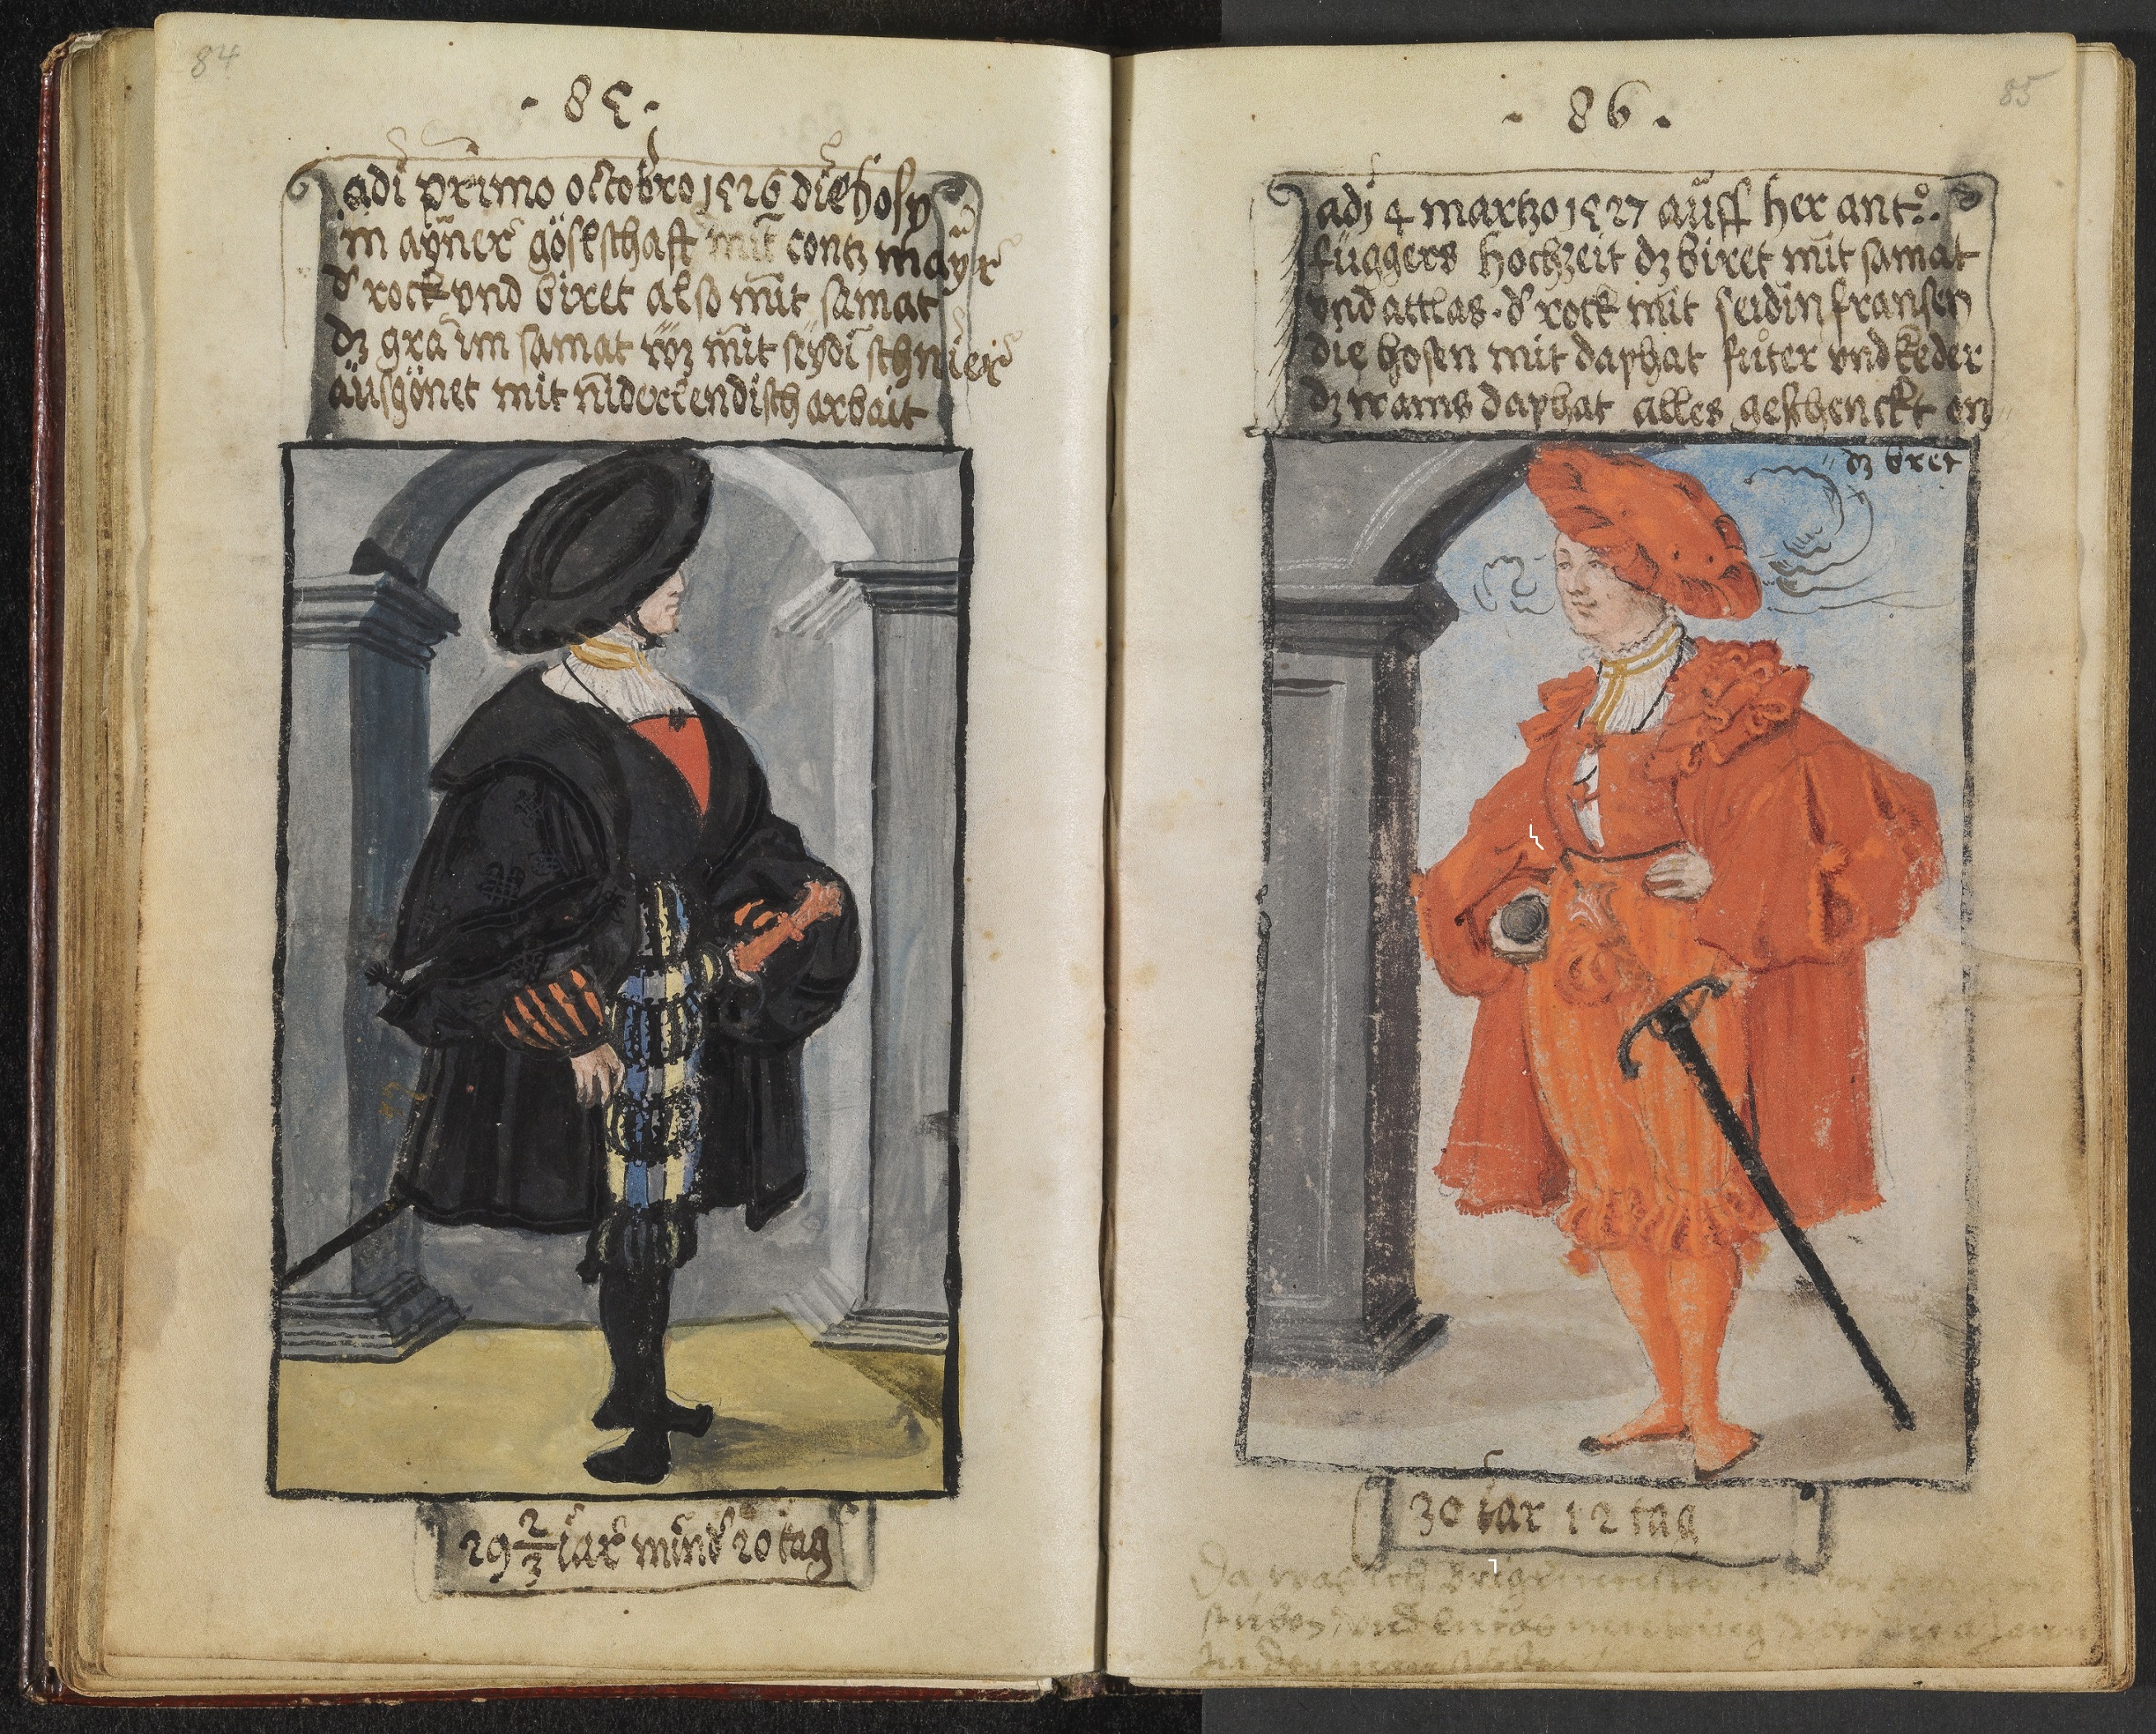 84
· 85 ·
adi primo octobro 1526 die hosy
in ayner göslschaft mit contz mayr
d' rock vnd biret also mit samat
dz gra im samat wz mit sydi schnier
ausgönet mit niderlendisch arbait
29 2/3 iar mind 20 tag
85
· 86 ·
adj 4 martzo 1527 auff her antº.
függers hochzeit dz biret mit samat
vnd attlas · d' rock mit seidin fransen
die hosen mit daphat futer vnd keder
dz wams daphat alles geschenckt on
dz bret
30 iar 12 tag
Da was ich
stuben vnd